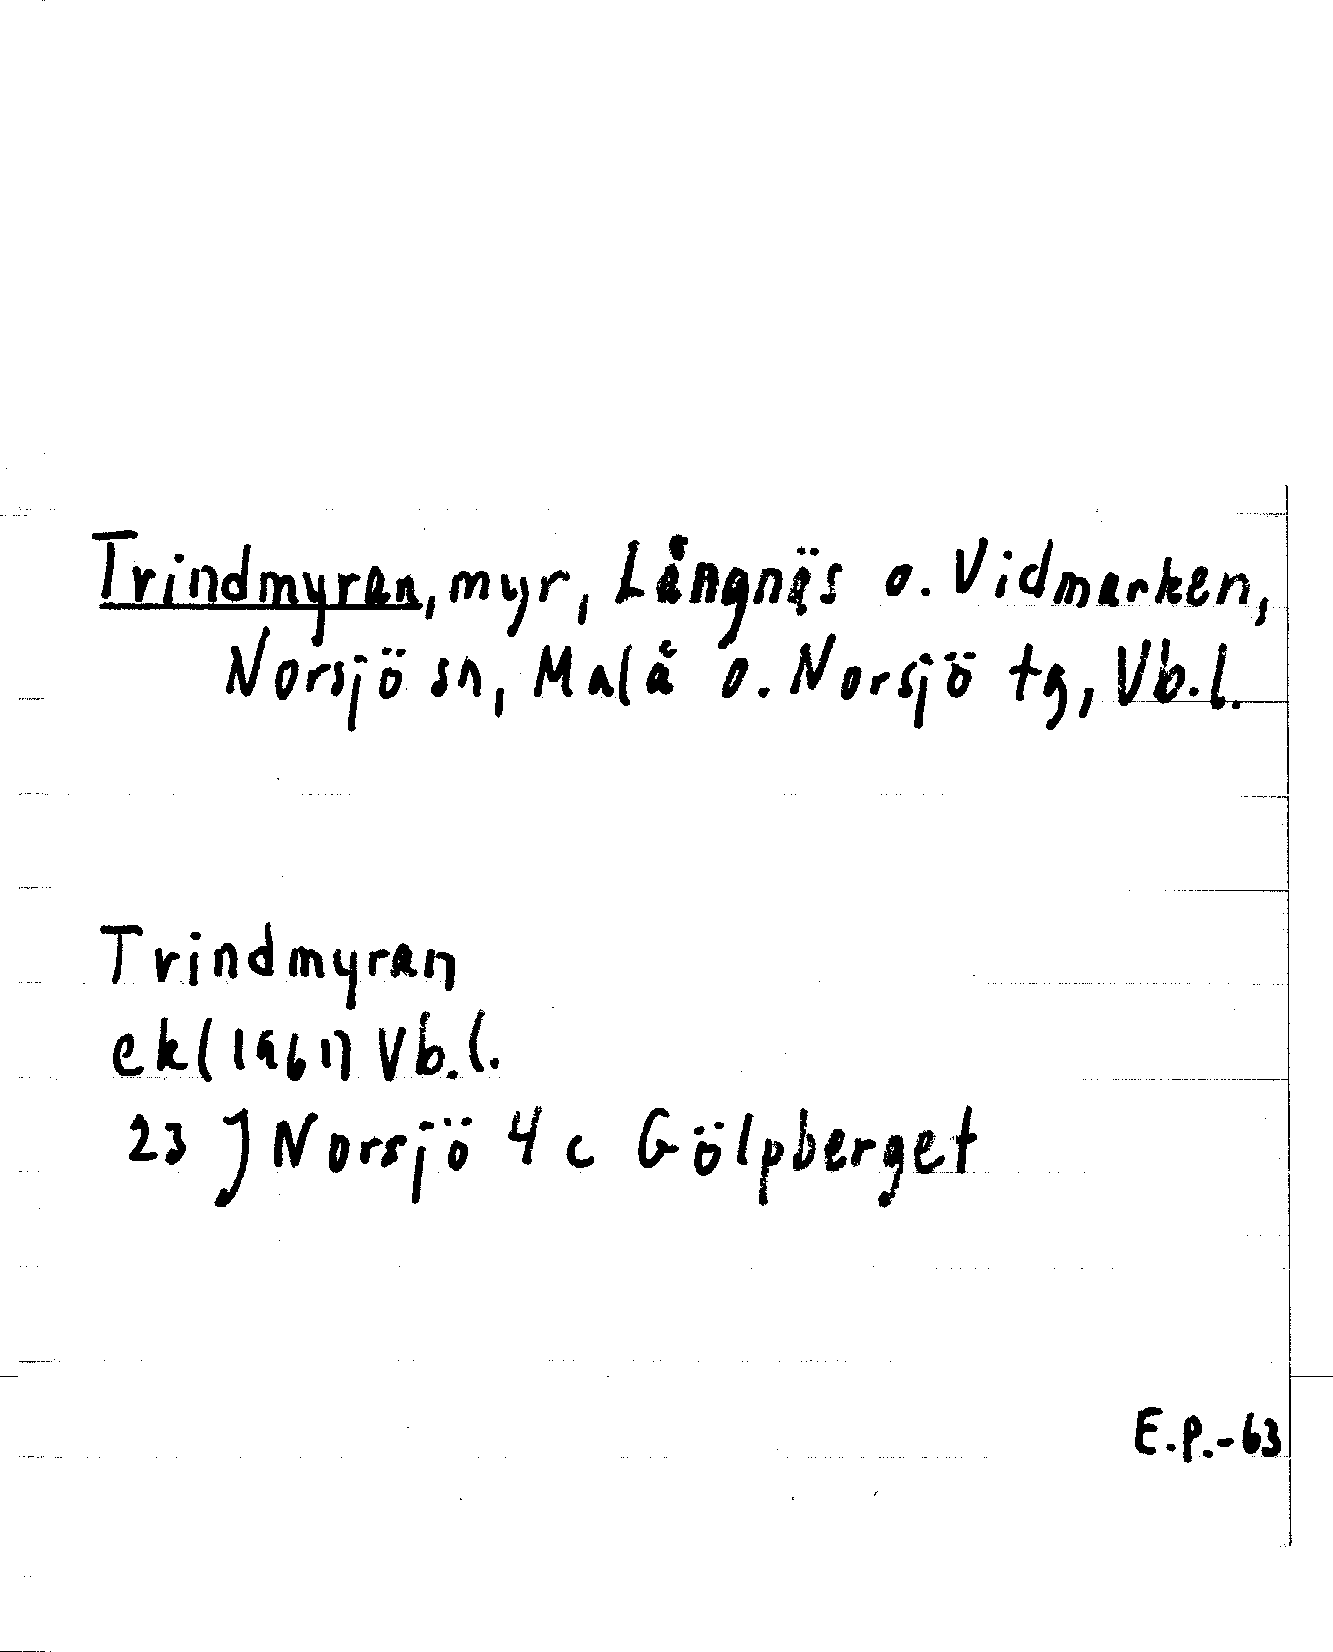 Trindmyran, myr, Långnäs o. Vidmarken,
Norsjö sn, Malå o. Norsjö tg, Vb.l.
Trindmyran
ekl(1961) Vb.l.
23 J Norsjö 4 c Gölpberget
E.P.-63